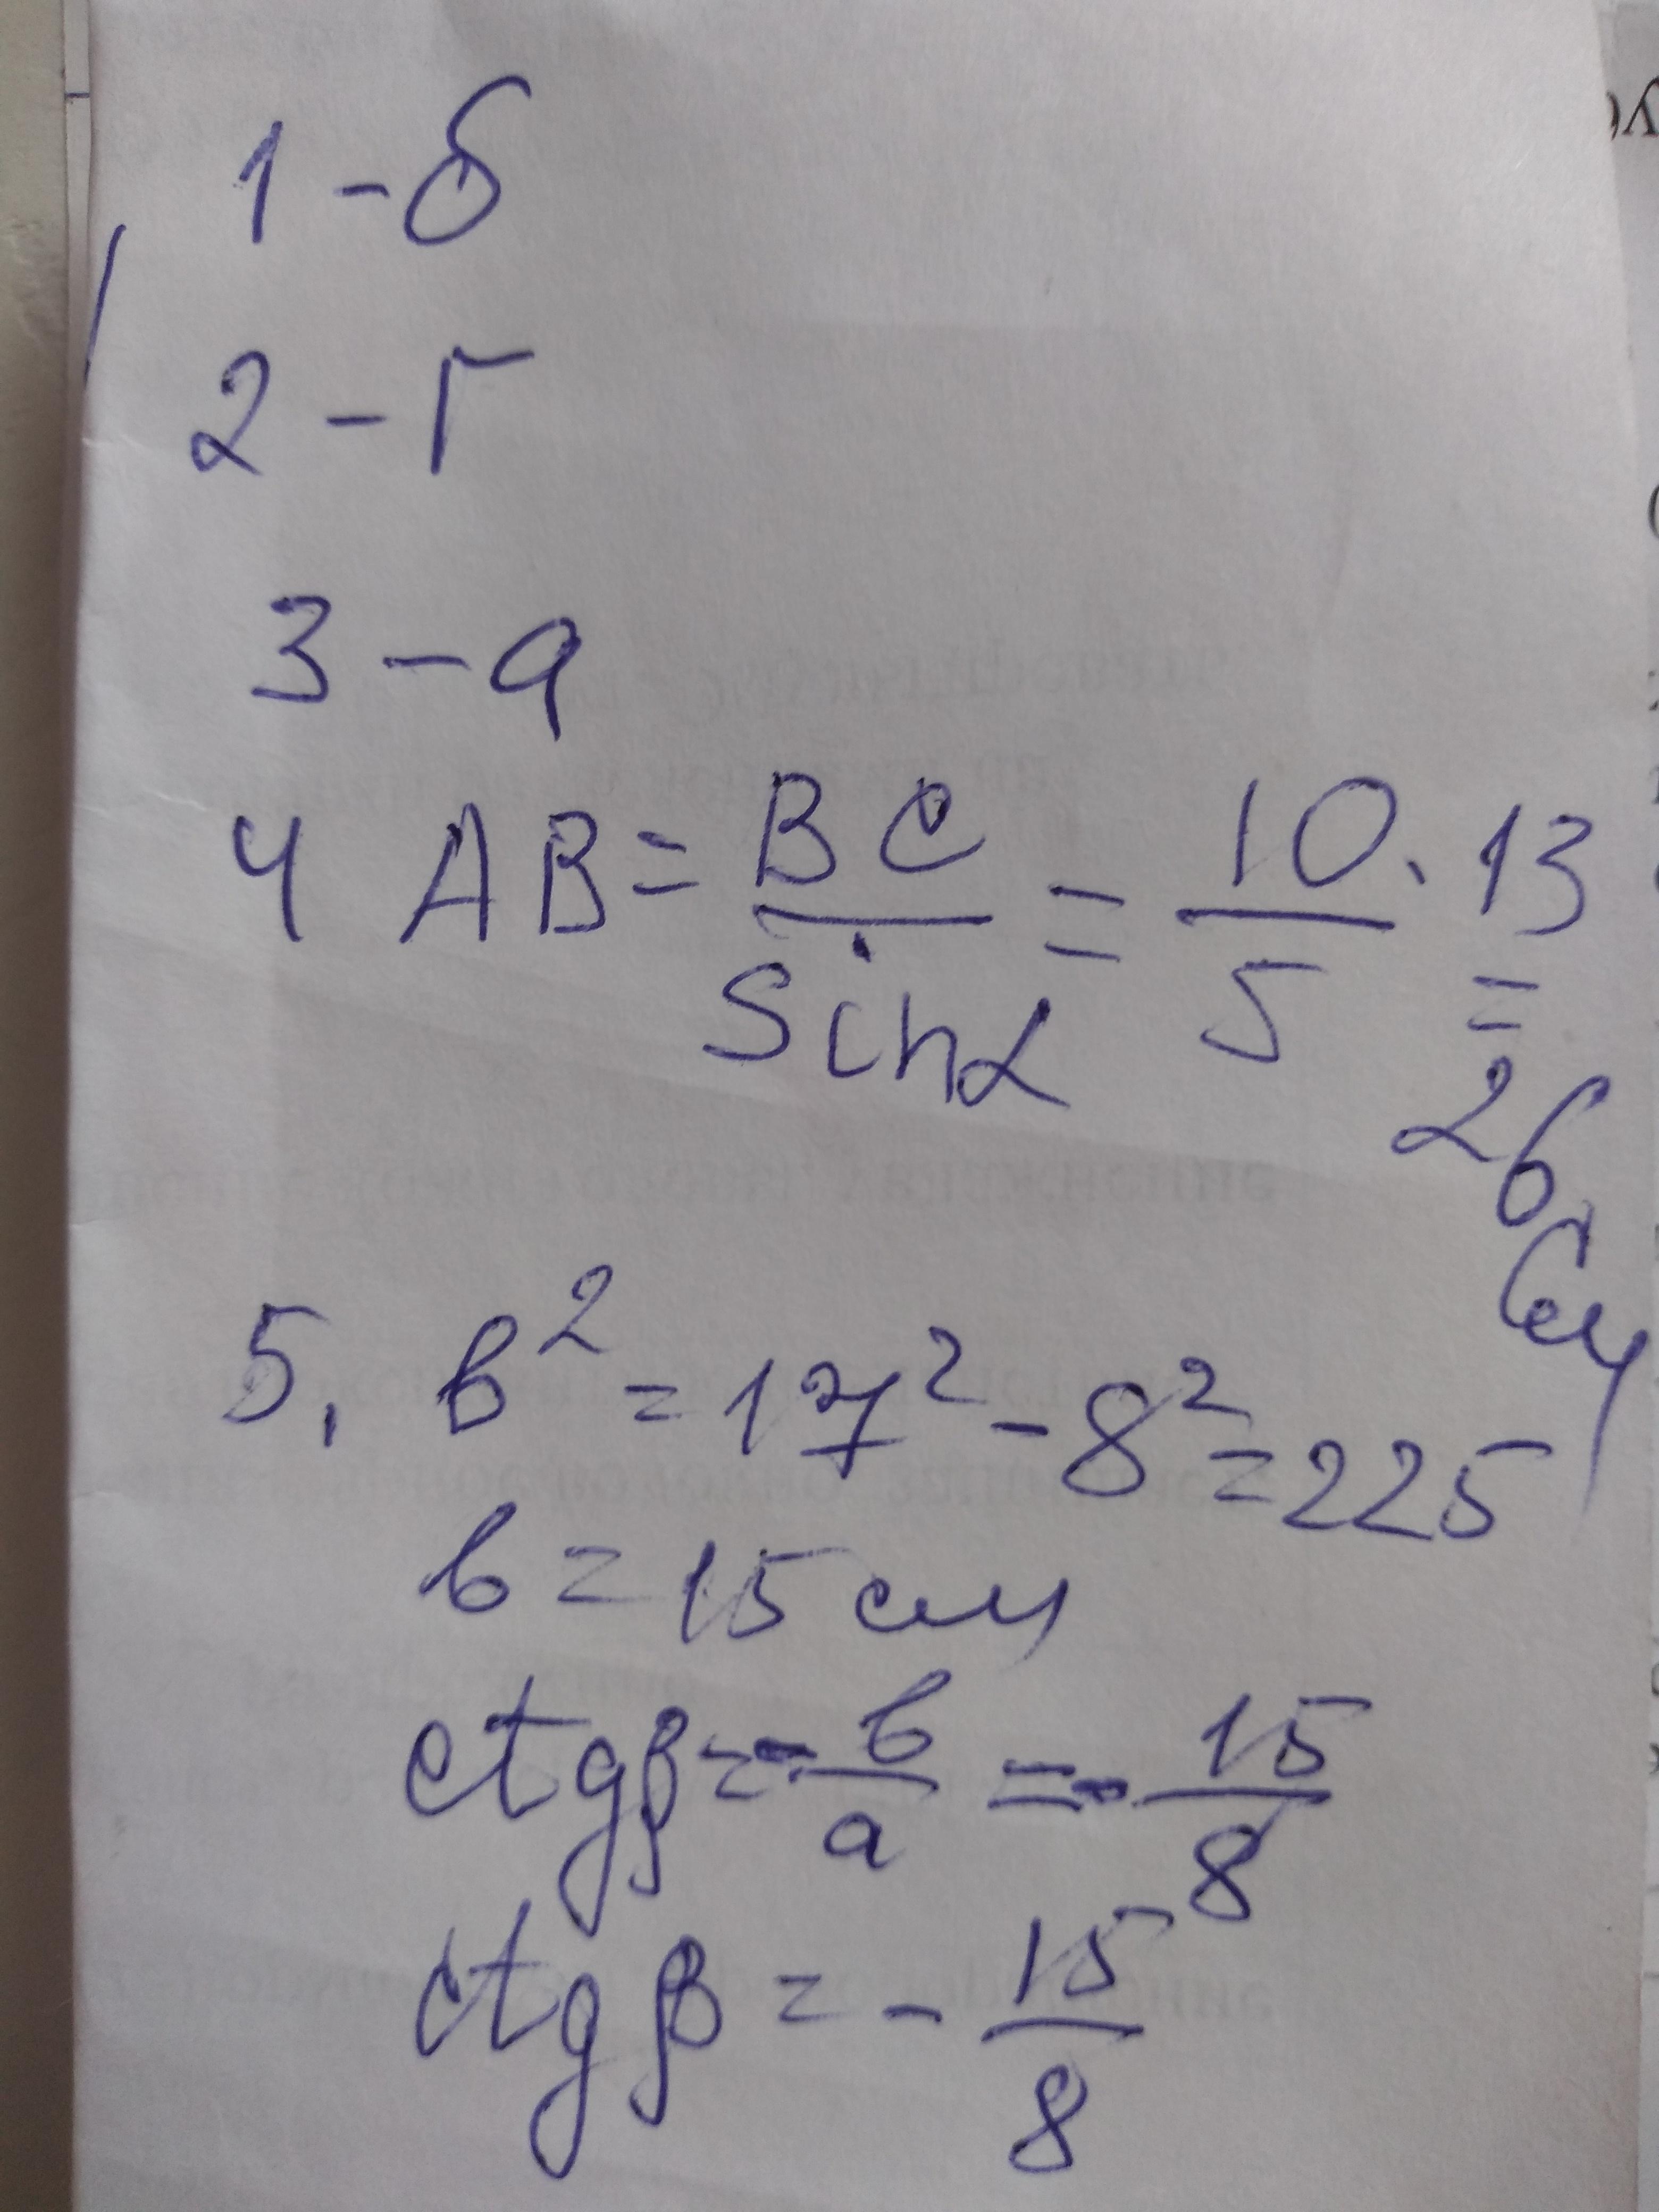 1 - б
2 - Г
3 - а
4 AB = BC/sinα = 10/5 · 13 = 26 см
5. в² = 17² - 8² = 225
в = 15 см
ctgβ = - в/а = - 15/8
ctgβ = - 15/8